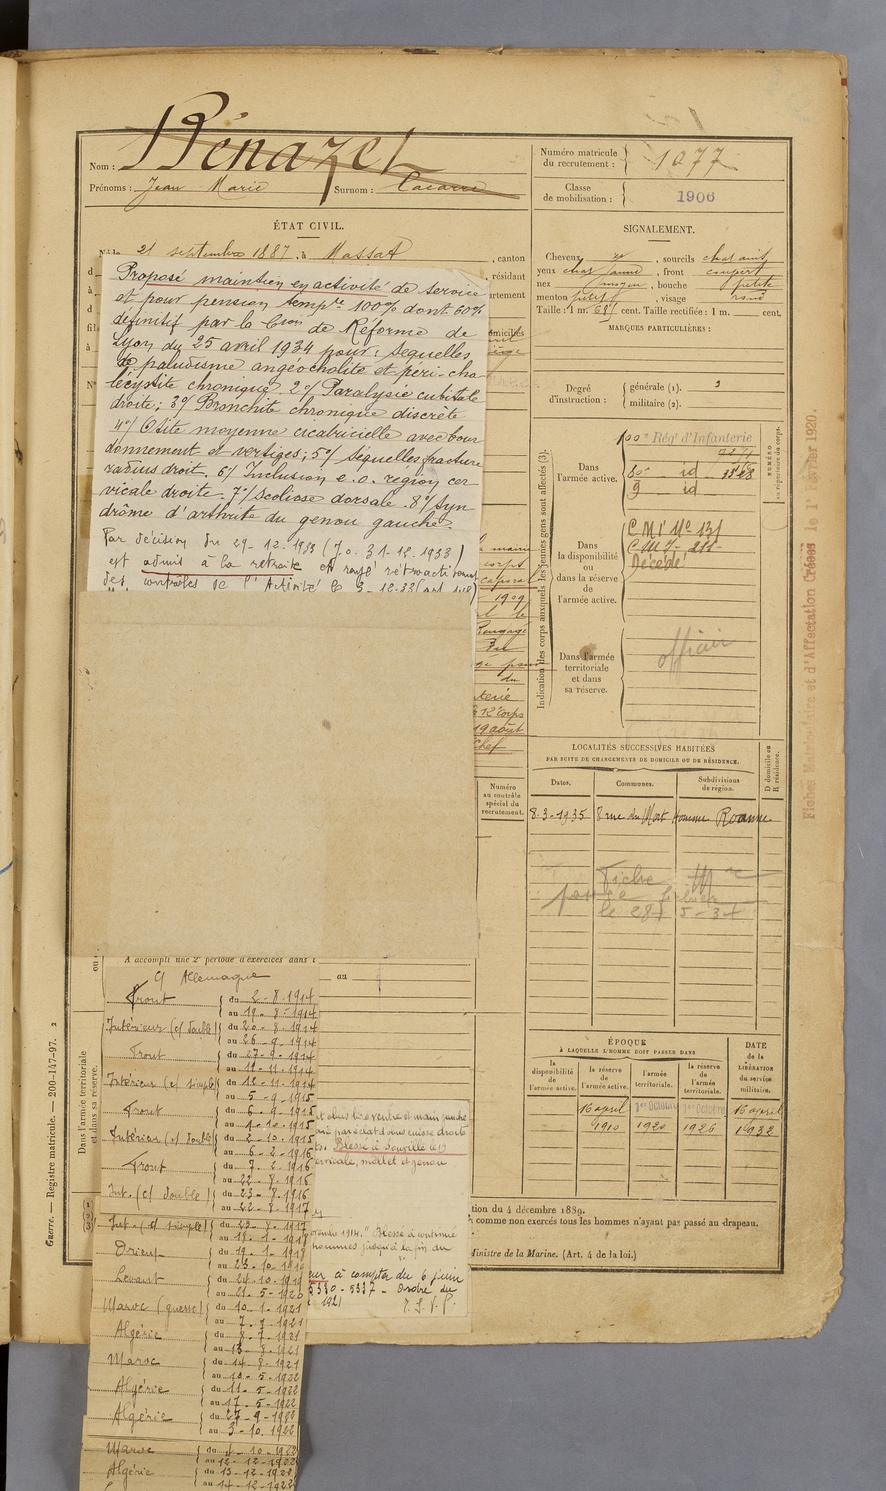 Nom : Bénazet
Prénoms : Jean Marie Surnom : Cacarre
ÉTAT CIVIL.
Né le 21 septembre 1887, à Massat, canton
, résidant
Proposé maintien en activité de service
et pour pension tempre 100% dont 60%
définitif par la Cion de Réforme de
Lyon du 25 avril 1934 pour : sequelles
de paludisme angéocholite et peri-cho-
lécystite chronique. 2°/ Paralysie cubitale
droite ; 3°/ Bronchite chronique discrète
4°/ Otite moyenne cicatricielle avec bour
donnement et vertiges ; 5°/ sequelles fracture
radius droit. 6°/ Inclusion e.o. région cer-
vicale droite. 7°/ Scoliose dorsale. 8°/ Syn-
drôme d'arthrite du genou gauche.
Par décision du 29-12-1933 (J.O. 31-12-1933)
est admis à la retraite et rayé rétroactivement
des contrôles de l'Activité le 3-12-33
Numéro
au contrôle
spécial du
recrutement.
Numéro matricule
du recrutement : 1077
Classe
de mobilisation : 1906
SIGNALEMENT.
Cheveux , sourcils chatains
yeux chat jaune, front couvert
nez moyen, bouche petite
menton petit, visage rond
Taille : 1 m. 68 cent. Taille rectifiée : 1 m. cent.
MARQUES PARTICULIÈRES :
Degré
d'instruction :
générale (1). 3
militaire (2).
Indication des corps auxquels les jeunes gens sont affectés (3).
NUMÉRO
au répertoire du corps.
Dans
l'armée active.
100e Rég' d'Infanterie
60e id
9 id
Dans
la disponibilité
ou
dans la réserve
de
l'armée active.
C M I No 131
Décédé
Dans l'armée
territoriale
et dans
sa réserve.
officier
Fiches Matriculaire et d'Affectation Créées le 1er Février 1920.
LOCALITÉS SUCCESSIVES HABITÉES
PAR SUITE DE CHANGEMENTS DE DOMICILE OU DE RÉSIDENCE.
Dates.
Communes.
Subdivisions
de région.
D domicile ou
R résidence.
8-3-1935 8 rue du Mort Homme Roanne
Fiche
le 28 5-34
ÉPOQUE
À LAQUELLE L'HOMME DOIT PASSER DANS
la
disponibilité
de
l'armée active.
la réserve
de
l'armée active.
l'armée
territoriale.
la réserve
de
l'armée
territoriale.
DATE
de la
LIBÉRATION
du service
militaire.
16 april 1er Octobre 1er Octobre 16 april
1910 1920 1926 1932
A accompli une 2e période d'exercices dans l
au
C/ Allemagne
Front du 2-8-1914
au 19-8-1914
Intérieur (c/ double) du 20-8-1914
au 26-9-1914
Front du 27-9-1914
au 11-11-1914
Intérieur (c/ simple) du 12-11-1914
au 5-9-1915
Front du 6-9-1915
au 1-10-1915
Intérieur (c/ double) du 2-10-1915
au 6-2-1916
Front du 7-2-1916
au 22-8-1916
Int. (c/ double) du 23-8-1916
au 22-8-1917
Int. (c/ simple) du 23-8-1917
au 18-1-1918
Orient du 19-1-1918
au 23-10-1919
Levant du 24-10-1919
au 21-5-1920
Maroc (guerre) du 10-1-1921
au 7-7-1921
Algérie du 8-7-1921
au 13-8-1921
Maroc du 14-8-1921
au 10-5-1922
Algérie du 11-5-1922
au 17-5-1922
Algérie du 27-9-1922
au 3-10-1922
Maroc du 4-10-1922
au 12-12-1922
Algérie du 13-12-1922
au 14-12-1922
et main gauche
par éclat d'obus cuisse droite
Blessé à Souville le 19
cervicale, mollet et genou
1914. "Blessé a continué
hommes jusqu'à la fin du
eur à compter du 6 juin
5330-5337 - Ordre du
1921
T. S. V. P.
tion du 4 décembre 1889.
comme non exercés tous les hommes n'ayant pas passé au drapeau.
Ministre de la Marine. (Art. 4 de la loi.)
Dans l'armée territoriale
et dans sa réserve.
Guerre. — Registre matricule. — 200-147-97. 2